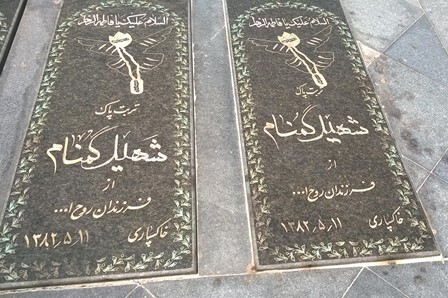 السلام علیک یا فاطمة الزهرا
تربت پاک
شهید گمنام
از
فرزندان روح ا...
خاکسپاری ۱۳۸۲٫۵٫۱۱
السلام علیک یا فاطمة الزهرا
تربت پاک
شهید گمنام
از
فرزندان روح ا...
خاکسپاری ۱۳۸۲٫۵٫۱۱